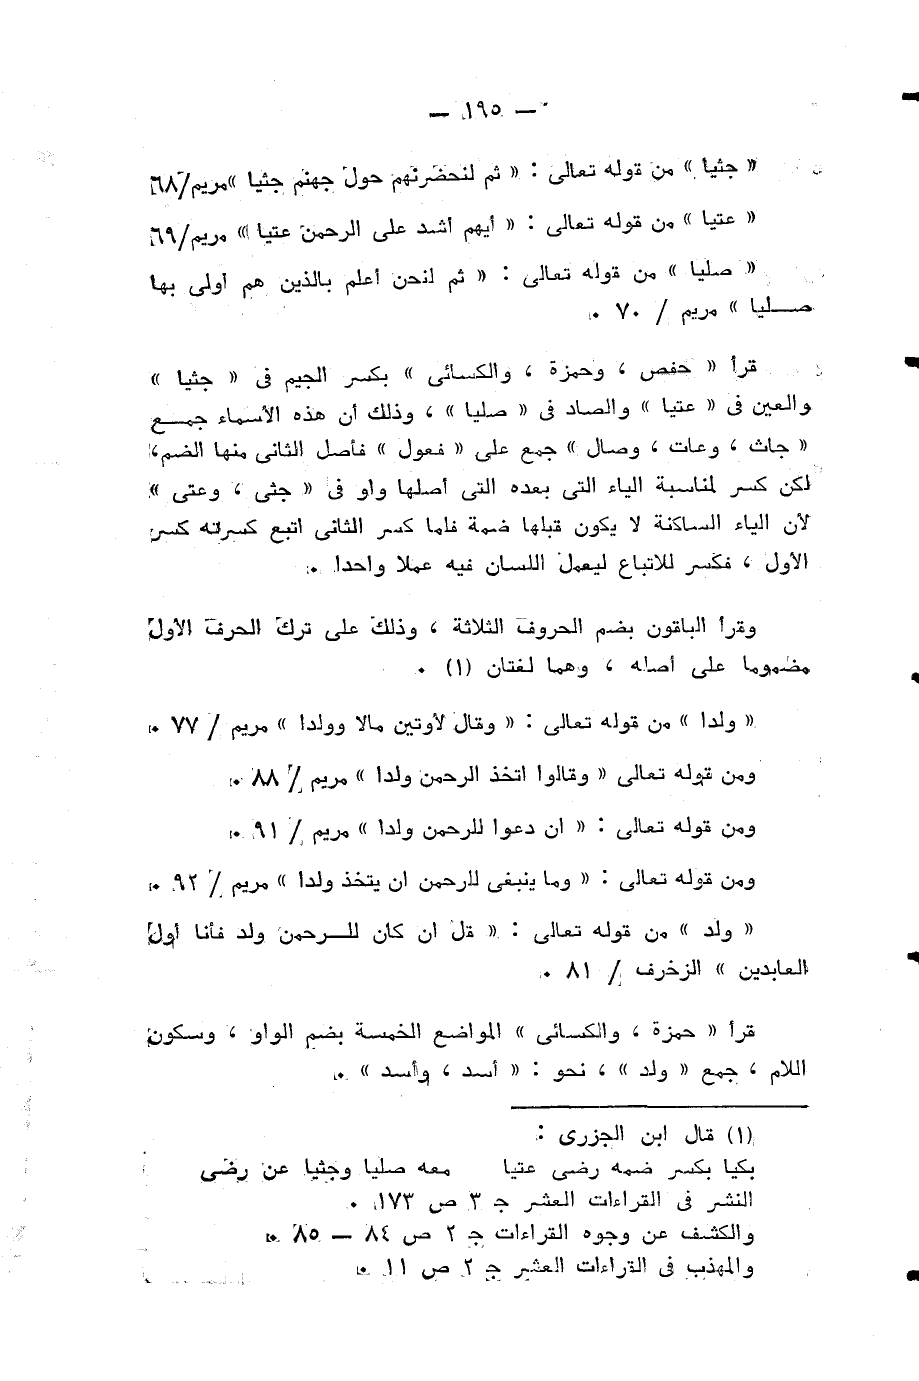 — ١٩٥ —
« جثيا » من قوله تعالى : « ثم لنحضرنهم حول جهنم جثيا » مريم/٦٨
« عتيا » من قوله تعالى : « أيهم أشد على الرحمن عتيا » مريم/٦٩
« صليا » من قوله تعالى : « ثم لنحن أعلم بالذين هم أولى بها
صـــليا » مريم / ٧٠ .
قرأ « حفص ، وحمزة ، والكسائى » بكسر الجيم فى « جثيا »
والعين فى « عتيا » والصاد فى « صليا » ، وذلك أن هذه الأسماء جمـــع
« جاث ، وعات ، وصال » جمع على « فعول » فأصل الثانى منها الضم ،
لكن كسر لمناسبة الياء التى بعده التى أصلها واو فى « جثى ، وعتى »
لأن الياء الساكنة لا يكون قبلها ضمة فلما كسر الثانى اتبع كسرته كسر
الأول ، فكسر للاتباع ليعمل اللسان فيه عملا واحدا .
وقرأ الباقون بضم الحروف الثلاثة ، وذلك على ترك الحرف الأول
مضموما على أصله ، وهما لغتان (١) .
« ولدا » من قوله تعالى : « وقال لأوتين مالا وولدا » مريم / ٧٧ .
ومن قوله تعالى « وقالوا اتخذ الرحمن ولدا » مريم / ٨٨ .
ومن قوله تعالى : « ان دعوا للرحمن ولدا » مريم / ٩١ .
ومن قوله تعالى : « وما ينبغى للرحمن ان يتخذ ولدا » مريم / ٩٢ .
« ولد » من قوله تعالى : « قل ان كان للـــرحمن ولد فأنا أول
العابدين » الزخرف / ٨١ .
قرأ « حمزة ، والكسائى » المواضع الخمسة بضم الواو ، وسكون
اللام ، جمع « ولد » ، نحو : « أسد ، وأسد » .
(١) قال ابن الجزرى :
بكيا بكسر ضمه رضى عتيا معه صليا وجثيا عن رضى
النشر فى القراءات العشر ج ٣ ص ١٧٣ .
والكشف عن وجوه القراءات ج ٢ ص ٨٤ — ٨٥ .
والمهذب فى القراءات العشر ج ٢ ص ١١ .